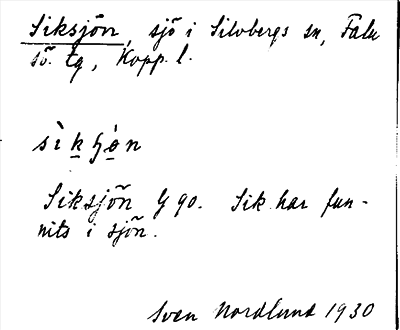 Siksjön, sjö i Silvbergs sn, Falu
sö. tg, Kopp. l.
Siksjön G 90. Sik har fun-
nits i sjön.
Sven Nordlund 1930